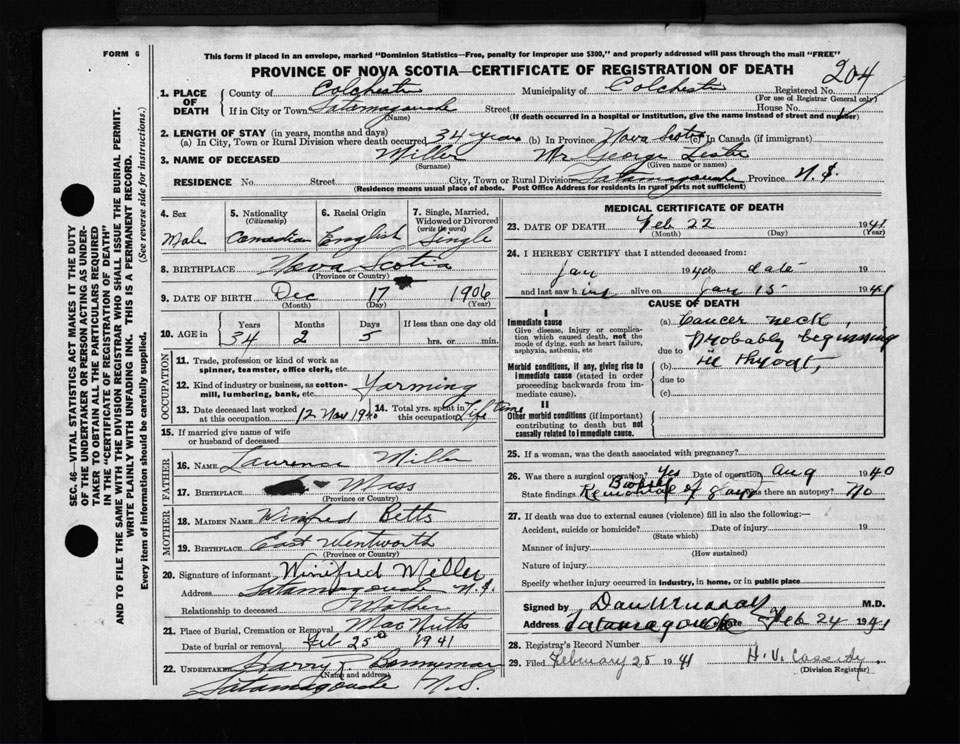 FORM 6
This form if placed in an envelope, marked "Dominion Statistics—Free, penalty for improper use $300," and properly addressed will pass through the mail "FREE"
PROVINCE OF NOVA SCOTIA—CERTIFICATE OF REGISTRATION OF DEATH
204
1. PLACE OF DEATH
County of Colchester
Municipality of Colchester
Registered No.
(For use of Registrar General only)
If in City or Town Tatamagouche
(Name)
Street
House No.
(If death occurred in a hospital or institution, give the name instead of street and number)
2. LENGTH OF STAY (in years, months and days)
(a) In City, Town or Rural Division where death occurred 34 years (b) In Province Nova Scotia (c) In Canada (if immigrant)
3. NAME OF DECEASED Miller Mr George Leslie
(Surname) (Given name or names)
RESIDENCE No. Street City, Town or Rural Division Tatamagouche Province N.S.
(Residence means usual place of abode. Post Office Address for residents in rural parts not sufficient)
4. Sex Male
5. Nationality (Citizenship) Canadian
6. Racial Origin English
7. Single, Married, Widowed or Divorced (write the word) Single
8. BIRTHPLACE Nova Scotia
(Province or Country)
9. DATE OF BIRTH Dec 17 1906
(Month) (Day) (Year)
10. AGE in Years 34 Months 2 Days 5 If less than one day hrs. or min.
OCCUPATION
11. Trade, profession or kind of work as spinner, teamster, office clerk, etc.
12. Kind of industry or business, as cotton-mill, lumbering, bank, etc. Farming
13. Date deceased last worked at this occupation 12 Nov 1940
14. Total yrs. spent in this occupation Life time
15. If married give name of wife or husband of deceased
FATHER
16. NAME Laurence Miller
17. BIRTHPLACE Mass
(Province or Country)
MOTHER
18. MAIDEN NAME Winifred Betts
19. BIRTHPLACE East Wentworth
(Province or Country)
20. Signature of informant Winifred Miller
Address Tatamagouche N.S.
Relationship to deceased Mother
21. Place of Burial, Cremation or Removal MacNutts
Date of burial or removal Feb 25th 1941
22. UNDERTAKER Harry Bonnyman
(Name and address)
Tatamagouche N.S.
MEDICAL CERTIFICATE OF DEATH
23. DATE OF DEATH Feb 22 1941
(Month) (Day) (Year)
24. I HEREBY CERTIFY that I attended deceased from:
Jan 1940 to date 19
and last saw him alive on Jan 15 1941
CAUSE OF DEATH
I
Immediate cause
Give disease, injury or complication which caused death, not the mode of dying, such as heart failure, asphyxia, asthenia, etc
(a) Cancer neck,
Probably beginning
due to
Morbid conditions, if any, giving rise to immediate cause (stated in order proceeding backwards from immediate cause).
(b) in throat,
due to
(c)
II
Other morbid conditions (if important) contributing to death but not causally related to immediate cause.
25. If a woman, was the death associated with pregnancy?
26. Was there a surgical operation? Yes Date of operation Aug 1940
State findings Removal of Was there an autopsy? No
27. If death was due to external causes (violence) fill in also the following:—
Accident, suicide or homicide? Date of injury 19
(State which)
Manner of injury
(How sustained)
Nature of injury
Specify whether injury occurred in industry, in home, or in public place
Signed by Dan Murray M.D.
Address Tatamagouche Date Feb 24 1941
28. Registrar's Record Number
29. Filed February 25 1941 H.V. Cassidy
(Division Registrar)
SEC. 46—VITAL STATISTICS ACT MAKES IT THE DUTY
OF THE UNDERTAKER OR PERSON ACTING AS UNDERTAKER TO OBTAIN ALL THE PARTICULARS REQUIRED
IN THE "CERTIFICATE OF DEATH"
AND TO FILE THE SAME WITH THE DIVISION REGISTRAR WHO SHALL ISSUE THE BURIAL PERMIT.
WRITE PLAINLY WITH UNFADING INK. THIS IS A PERMANENT RECORD.
Every item of information should be carefully supplied. (See reverse side for instructions.)